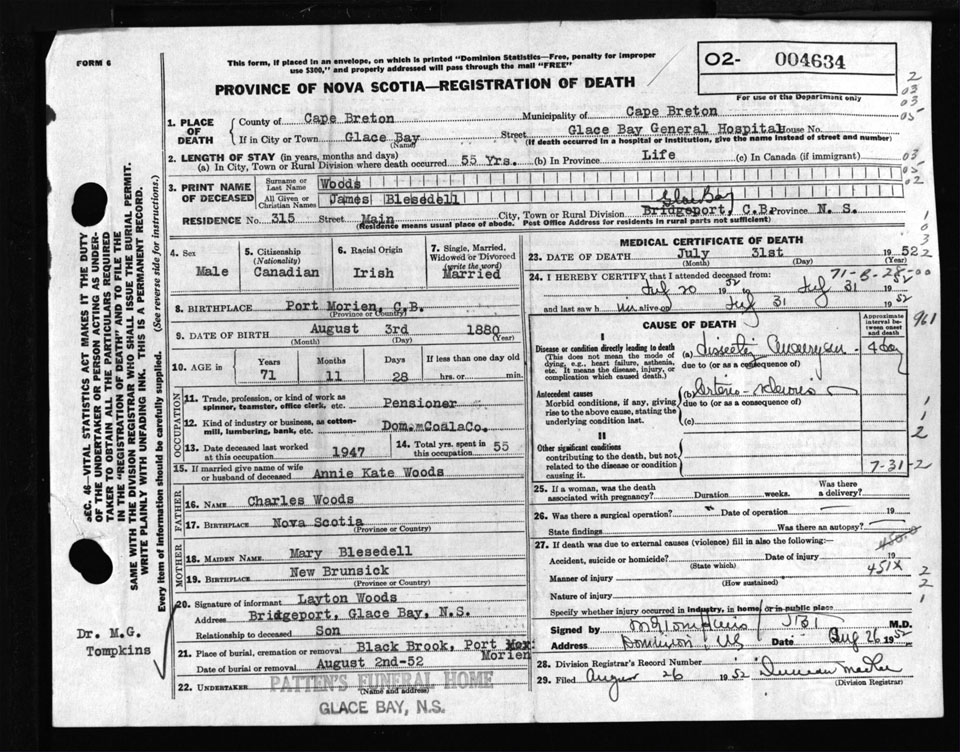 FORM 6
This form, if placed in an envelope, on which is printed "Dominion Statistics—Free, penalty for improper
use $300," and properly addressed will pass through the mail "FREE"
O2- 004634
For use of the Department only
PROVINCE OF NOVA SCOTIA—REGISTRATION OF DEATH
1. PLACE OF DEATH
County of Cape Breton Municipality of Cape Breton
If in City or Town Glace Bay Street Glace Bay General Hospital House No.
(Name) (If death occurred in a hospital or institution, give the name instead of street and number)
2. LENGTH OF STAY (in years, months and days)
(a) In City, Town or Rural Division where death occurred 55 Yrs. (b) In Province Life (c) In Canada (if immigrant)
3. PRINT NAME OF DECEASED
Surname or Last Name Woods
All Given or Christian Names James Blesedell
Glace Bay
RESIDENCE No. 315 Street Main City, Town or Rural Division Bridgeport, C.B. Province N. S.
(Residence means usual place of abode. Post Office Address for residents in rural parts not sufficient)
4. Sex Male
5. Citizenship (Nationality) Canadian
6. Racial Origin Irish
7. Single, Married, Widowed or Divorced (write the word) Married
8. BIRTHPLACE Port Morien, C.B.
(Province or Country)
9. DATE OF BIRTH August 3rd 1880
(Month) (Day) (Year)
10. AGE in Years 71 Months 11 Days 28 If less than one day old hrs. or min.
OCCUPATION
11. Trade, profession, or kind of work as spinner, teamster, office clerk, etc. Pensioner
12. Kind of industry or business, as cotten-mill, lumbering, bank, etc. Dom.mCoalaCo.
13. Date deceased last worked at this occupation 1947
14. Total yrs. spent in this occupation 55
15. If married give name of wife or husband of deceased Annie Kate Woods
FATHER
16. NAME Charles Woods
17. BIRTHPLACE Nova Scotia
(Province or Country)
MOTHER
18. MAIDEN NAME. Mary Blesedell
19. BIRTHPLACE New Brunsick
(Province or Country)
20. Signature of informant Layton Woods
Address Bridgeport, Glace Bay, N.S.
Relationship to deceased Son
21. Place of burial, cremation or removal Black Brook, Port Morien
Date of burial or removal August 2nd-52
22. UNDERTAKER PATTEN'S FUNERAL HOME
(Name and address)
GLACE BAY, N.S.
MEDICAL CERTIFICATE OF DEATH
23. DATE OF DEATH July 31st 1952
(Month) (Day) (Year)
71-8-28-00
24. I HEREBY CERTIFY, that I attended deceased from:
Jul 20 1952 to Jul 31 19
and last saw h im alive on Jul 31 1952
CAUSE OF DEATH
Approximate interval between onset and death
I
Disease or condition directly leading to death
(This does not mean the mode of dying, e.g., heart failure, asthenia, etc. It means the disease, injury, or complication which caused death.)
(a) 4 day
due to (or as a consequence of)
Antecedent causes
Morbid conditions, if any, giving rise to the above cause, stating the underlying condition last.
(b) Arterio-sclerosis
due to (or as a consequence of)
(c)
II
Other significant conditions
contributing to the death, but not related to the disease or condition causing it.
7-31-2
961
25. If a woman, was the death associated with pregnancy? Duration weeks. Was there a delivery?
26. Was there a surgical operation? Date of operation
State findings Was there an autopsy?
27. If death was due to external causes (violence) fill in also the following:—
Accident, suicide or homicide? Date of injury 19
(State which)
451X
Manner of injury
(How sustained)
Nature of injury
Specify whether injury occurred in industry, in home, or in public place
Signed by M G Tompkins M.D.
Address Dominion, NS Date Aug 26 1952
28. Division Registrar's Record Number
29. Filed August 26 1952
(Division Registrar)
SEC. 46—VITAL STATISTICS ACT MAKES IT THE DUTY
OF THE UNDERTAKER OR PERSON ACTING AS UNDER-
TAKER TO OBTAIN ALL THE PARTICULARS REQUIRED
IN THE "REGISTRATION OF DEATH" AND TO FILE THE
SAME WITH THE DIVISION REGISTRAR WHO SHALL ISSUE THE BURIAL PERMIT.
WRITE PLAINLY WITH UNFADING INK. THIS IS A PERMANENT RECORD.
Every item of information should be carefully supplied. (See reverse side for instructions.)
Dr. M.G.
Tompkins